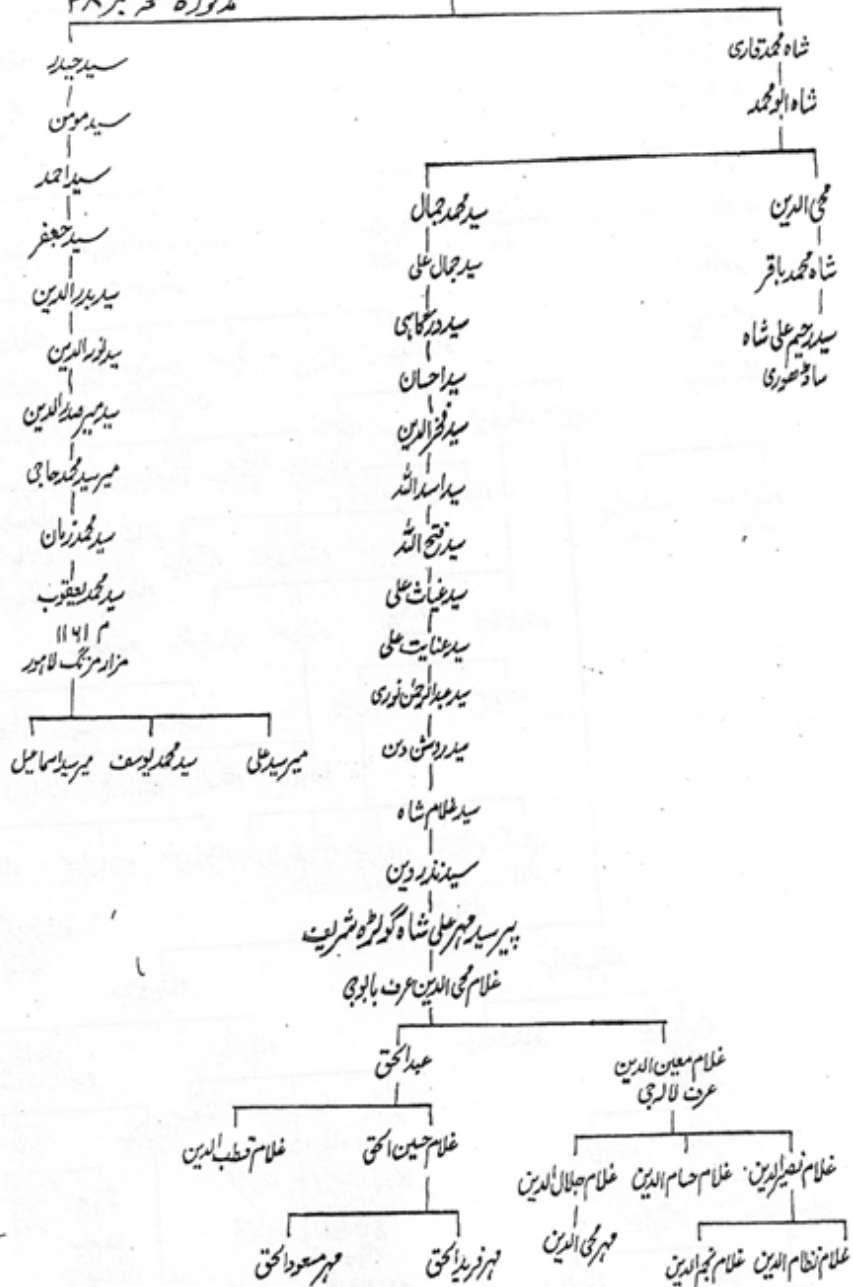 مذکورہ
شاہ محمد قاری
شاہ ابو محمد
محی الدین
شاہ محمد باقر
سید رحیم علی شاہ
ساڈھوری
سید محمد جمال
سید جمال علی
سید درگاہی
سید احسان
سید فخر الدین
سید اسد اللہ
سید فتح اللہ
سید غیاث علی
سید عنایت علی
سید عبدالرحمٰن نوری
سید روشن دین
سید غلام شاہ
سید نذر دین
پیر سید مہر علی شاہ گولڑہ شریف
غلام محی الدین عرف بابوجی
غلام معین الدین
عرف لالہ جی
عبدالحق
غلام نصیر الدین
غلام حسام الدین
غلام جلال الدین
غلام نظام الدین
غلام نجم الدین
مہر محی الدین
غلام حسین الحق
غلام قطب الدین
مہر فرید الحق
مہر مسعود الحق
سید حیدر
سید مومن
سید احمد
سید جعفر
سید بدر الدین
سید نور الدین
سید میر صدر الدین
میر سید محمد حاجی
سید محمد زمان
سید محمد یعقوب
م ۱۱۶۱
مزار مزنگ لاہور
میر سید علی
سید محمد یوسف
میر سید اسماعیل